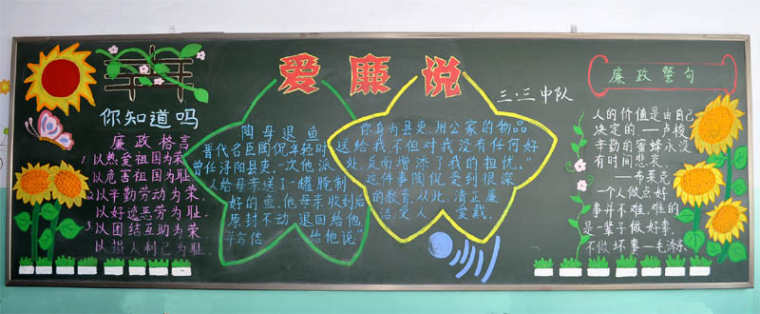 爱廉说
三·三中队
你知道吗
廉政格言
1.以热爱祖国为荣
以危害祖国为耻
2.以辛勤劳动为荣.
以好逸恶劳为耻.
3.以团结互助为荣
以损人利己为耻.
陶母退鱼
晋代名臣陶侃年轻时
曾任浔阳县吏.一次他派
人给母亲送了一罐腌制
好的鱼.他母亲收到后
原封不动.退回给他
并写信 给他说"
你身为县吏.用公家的物品
送给我不但对我没有任何好
处.反而增添了我的担忧."
这件事陶侃受到很深
的教育.从此.清正廉
洁受人 爱戴.
廉政警句
人的价值是由自己
决定的 —卢梭
辛勤的蜜蜂永没
有时间悲哀.
—布莱克
一个人做点好
事并不难.难的
是一辈子做好事.
不做坏事—毛泽东